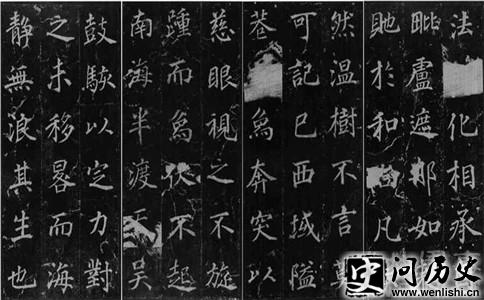 法化相承
毗盧遮那如
貤於和凡
然溫樹不言
可記已西域隘
巷為奔突以
慈眼視之不旋
踵而為伏不起
南海半渡天吳
鼓駭以定力對
之未移晷而海
靜無浪其生也
史问历史
www.wenlishi.cn